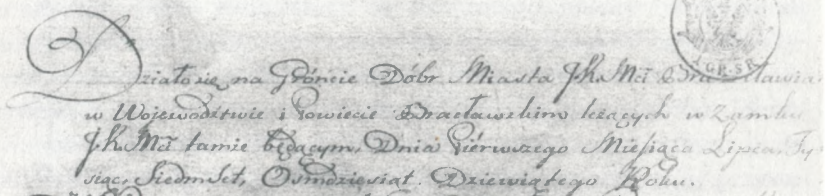 Działo się na Gróncie Dóbr Miasta JKMci Bracławia
w Woiewodztwie i Powiecie Bracławskim leżących w Zamku
JKMci tamże będącym, Dnia Pierwszego Miesiąca Lipca, Ty-
siąc, Siedmset, Osmdziesiąt Dziewiątego Roku.